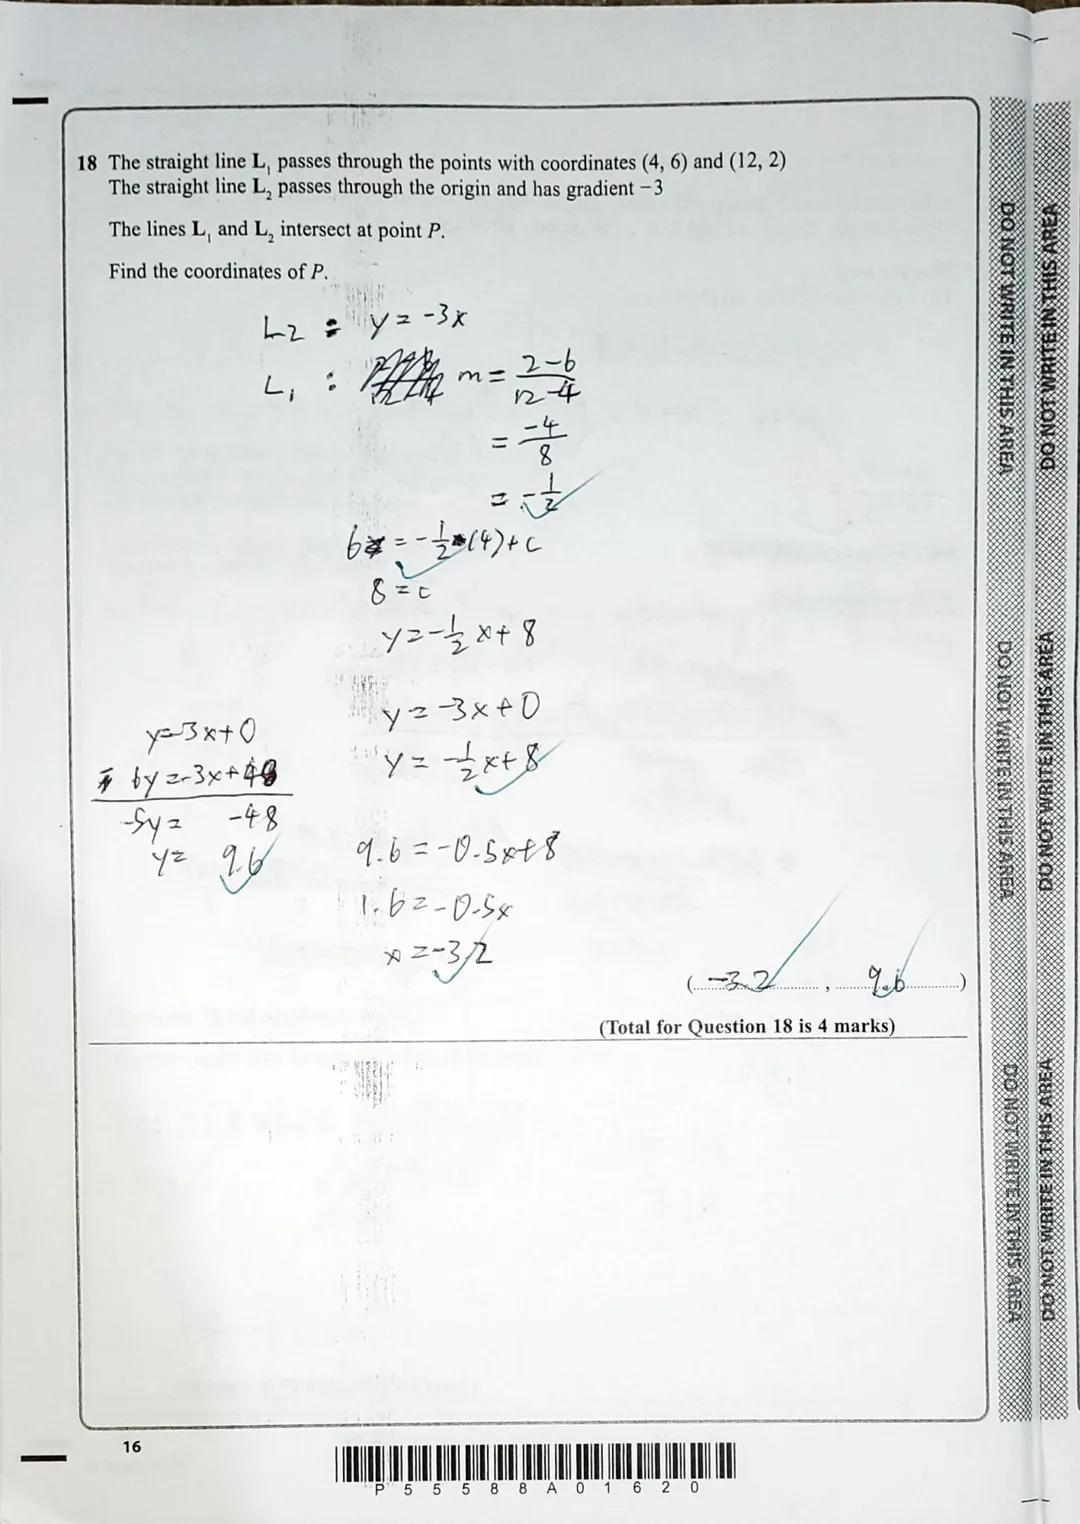 18 The straight line L₁ passes through the points with coordinates (4, 6) and (12, 2)
The straight line L₂ passes through the origin and has gradient −3
The lines L₁ and L₂ intersect at point P.
Find the coordinates of P.
L2 : y = -3x
L₁ : m = (2-6)/(12-4)
= -4/8
= -1/2
6 = -1/2 (4) + c
8 = c
y = -1/2 x + 8
y = -3x + 0
y = -1/2 x + 8
y = -3x + 0
6y = -3x + 48
-5y = -48
y = 9.6
9.6 = -0.5x + 8
1.6 = -0.5x
x = -3.2
( -3.2 , 9.6 )
(Total for Question 18 is 4 marks)
16
P 5 5 5 8 8 A 0 1 6 2 0
DO NOT WRITE IN THIS AREA
DO NOT WRITE IN THIS AREA
DO NOT WRITE IN THIS AREA
DO NOT WRITE IN THIS AREA
DO NOT WRITE IN THIS AREA
DO NOT WRITE IN THIS AREA